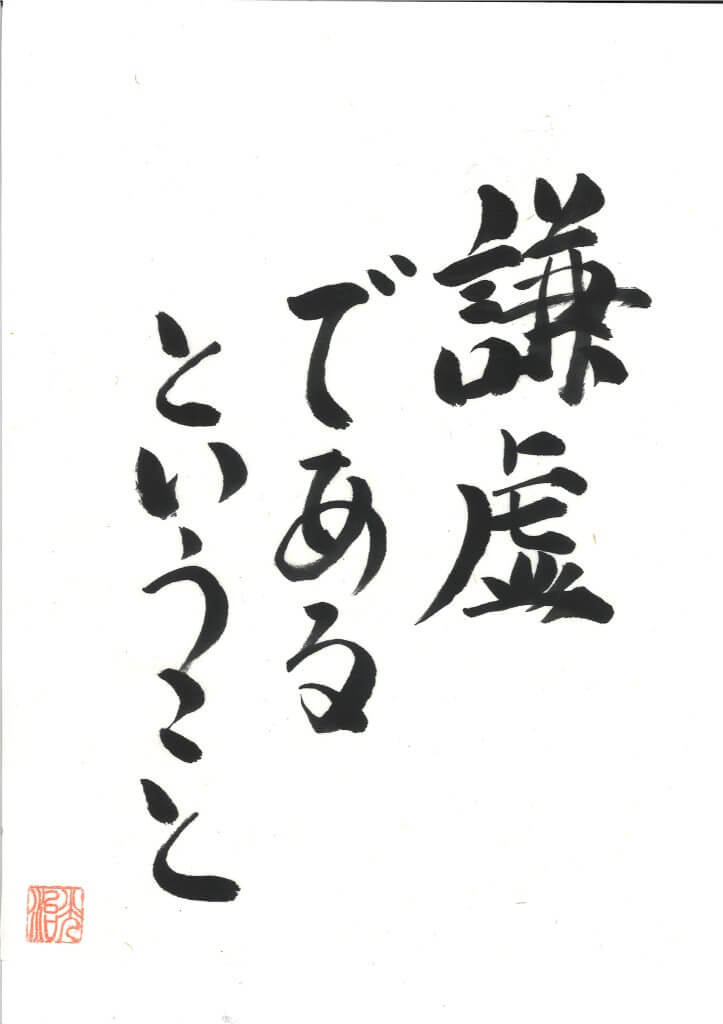 謙虚
である
ということ